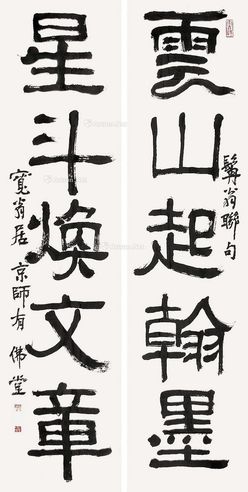 雲山起翰墨
髯翁聯句
星斗煥文章
寬翁居京師有佛堂